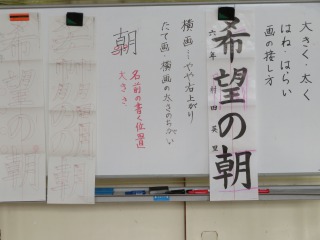 大きく・太く
はね・はらい
画の接し方
希望の朝
六年
横画→やや右上がり
たて画、横画の太さのちがい
名前の書く位置
大きさ
朝